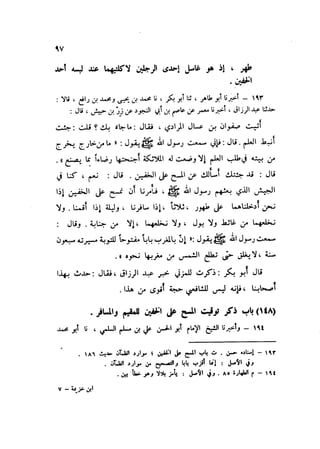 ٩٧
طهر ، إذ هو غاسل إحدى الرجلين لا كلتيهما عند لبسه أحد
الخفين .
١٩٣ - أخبرنا أبو طاهر ، ثنا أبو بكر ، نا محمد بن يحيى ومحمد بن رافع ، قالا :
حدثنا عبد الرزاق ، أخبرنا معمر عن عاصم بن أبي النجود عن زر بن حبيش ، قال :
أتيت صفوان بن عسال المرادي ، فقال : ما جاء بك ؟ قلت : جئت
أنبط العلم . قال : فإني سمعت رسول الله ﷺ يقول : « ما من خارج يخرج
من بيته في طلب العلم إلا وضعت له الملائكة أجنحتها رضاءاً بما يصنع » .
قال : قد جئتك أسألك عن المسح على الخفين . قال : نعم ، كنا في
الجيش الذي بعثهم رسول الله ﷺ ، فأمرنا أن نمسح على الخفين إذا
نحن أدخلناهما على طهور ، ثلاثاً ، إذا سافرنا ، وليلة إذا أقمنا . ولا
نخلعهما من غائط ولا بول ، ولا نخلعهما ، إلا من جنابة . وقال :
سمعت رسول الله ﷺ يقول : « إن بالمغرب باباً مفتوحاً للتوبة مسيرته سبعون
سنة ، لا يغلق حتى تطلع الشمس من مغربها نحوه » .
قال أبو بكر : ذكرت للمزني خبر عبد الرزاق ، فقال : حدث بهذا
أصحابنا ، فإنه ليس للشافعي حجة أقوى من هذا .
(١٤٨) باب ذكر توقيت المسح على الخفين للمقيم والمسافر .
١٩٤ - وأخبرنا الشيخ الإمام أبو الحسن علي بن مسلم السلمي ، نا أبو محمد
١٩٣ - إسناده حسن . ت باب المسح على الخفين ؛ موارد الظمآن حديث ١٨٦ .
وفي الأصل : والتصحيح من موارد الظمآن .
١٩٤ - م الطهارة ٨٥ . وفي الأصل : بلالا وهو خطأ بين .
ابن خزيمة - ٧